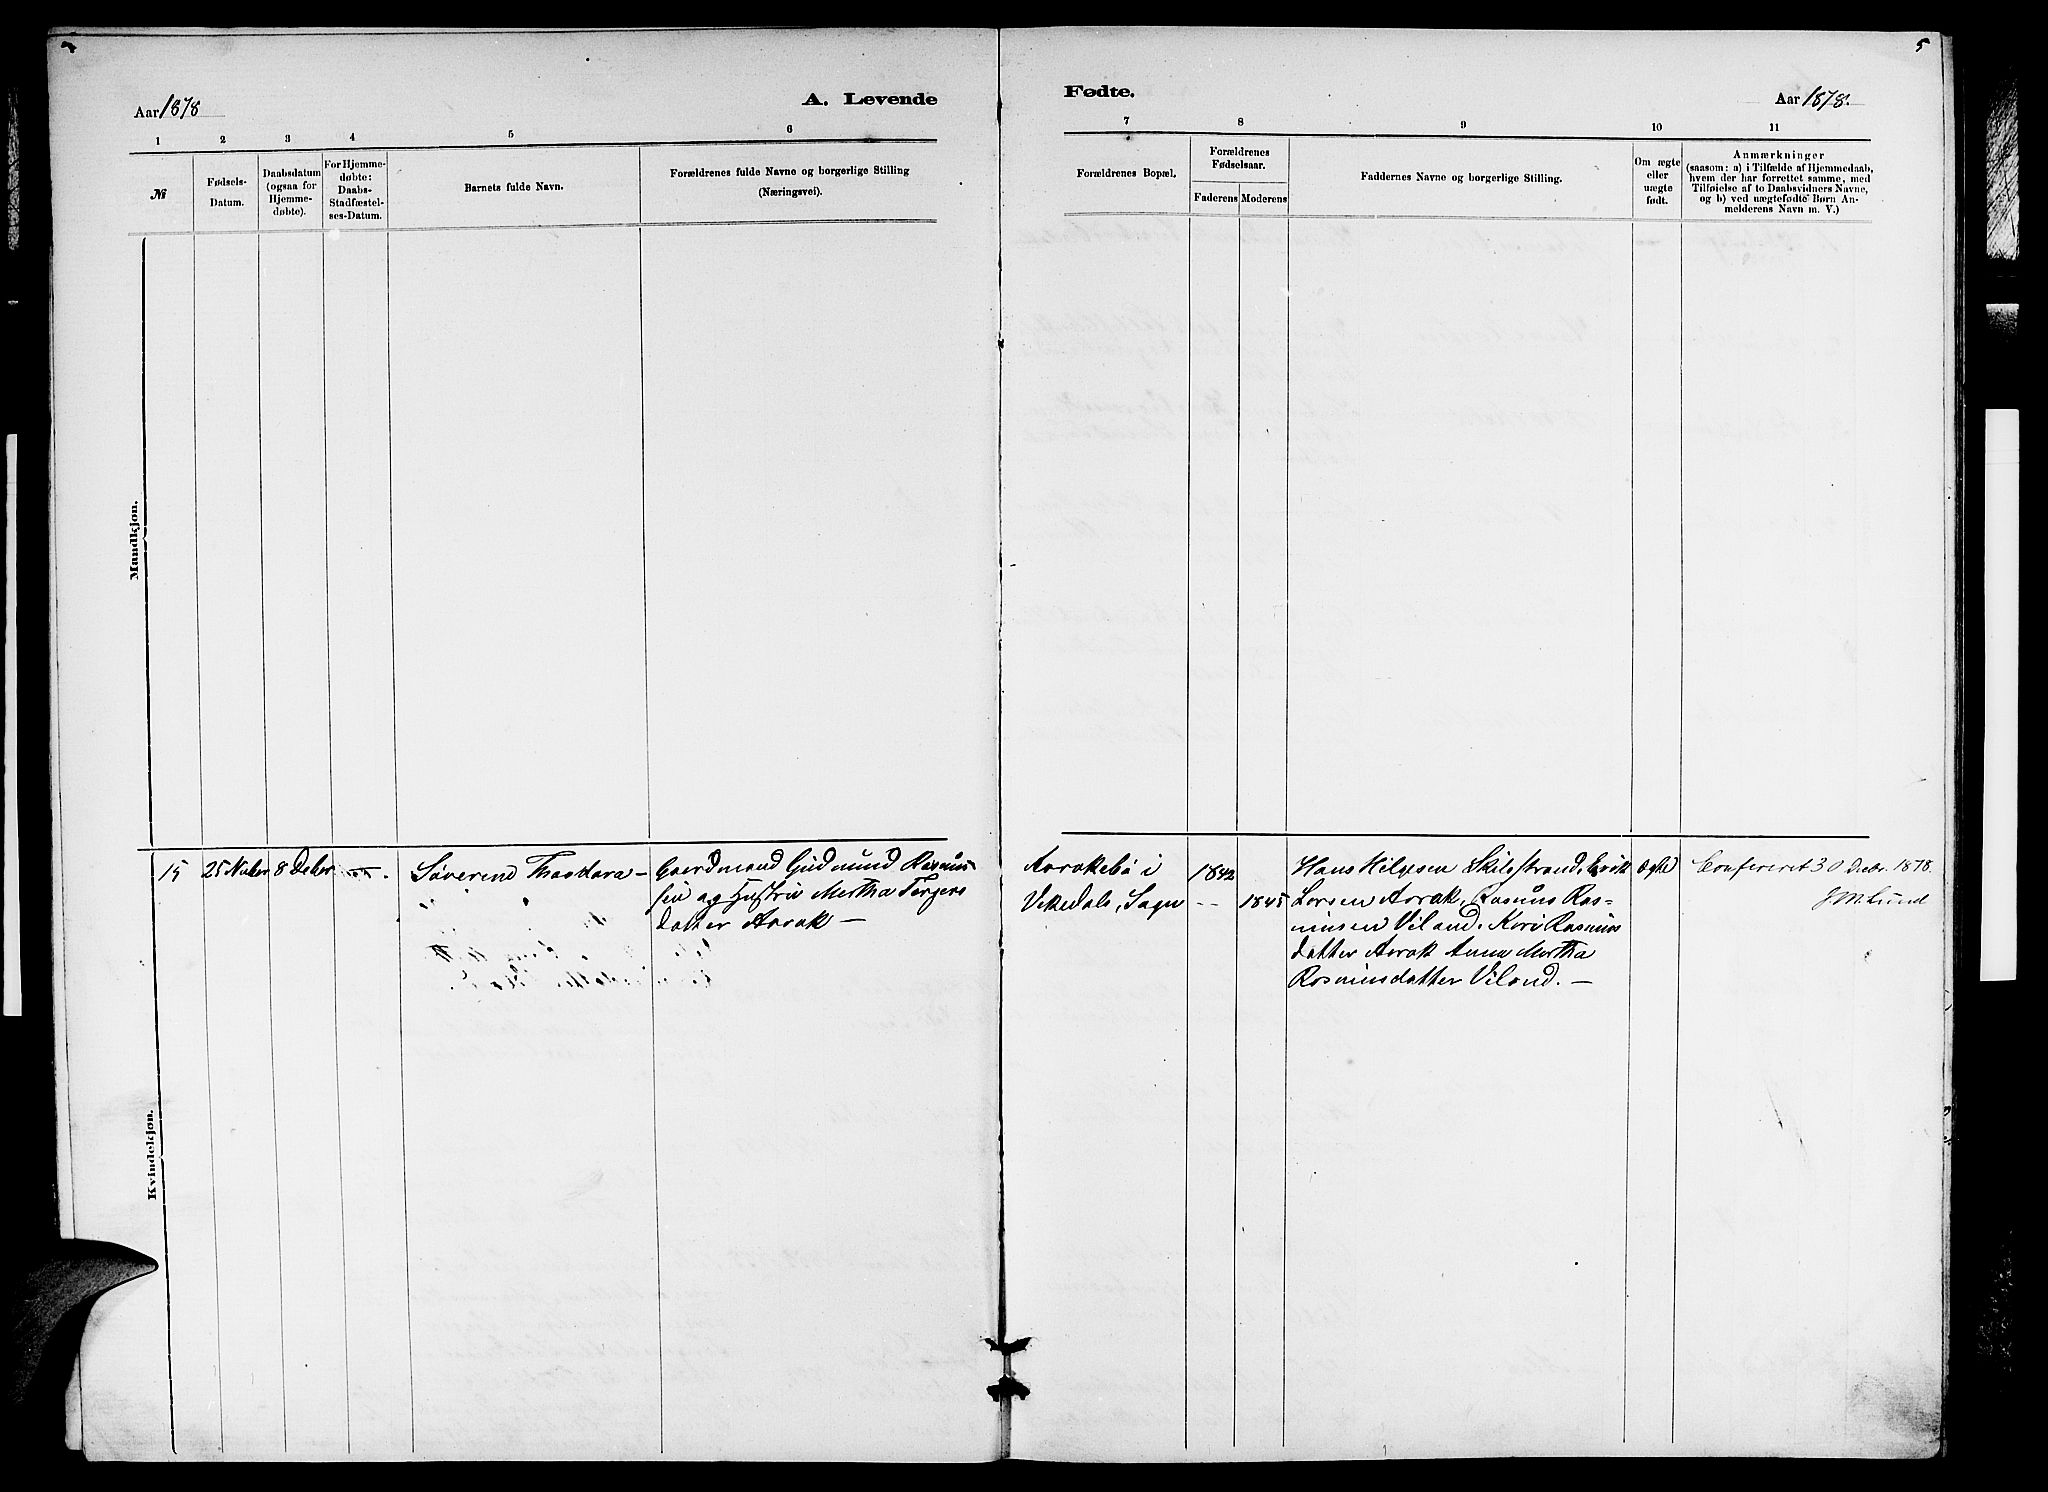 5
Aar 1878
A. Levende
Fødte.
Aar 1878.
1 2 3 4 5 6
7 8 9 10 11
№
Fødsels-
Datum.
Daabsdatum
(ogsaa for
Hjemme-
døbte).
For Hjemme-
døbte:
Daabs-
Stadfæstel-
ses-Datum.
Barnets fulde Navn.
Forældrenes fulde Navne og borgerlige Stilling
(Næringsvei).
Forældrenes Bopæl.
Forældrenes
Fødselsaar.
Faderens Moderens
Faddernes Navne og borgerlige Stilling.
Om ægte
eller
uægte
født.
Anmærkninger
(saasom: a) i Tilfælde af Hjemmedaab,
hvem der har forrettet samme, med
Tilføielse af to Daabsvidners Navne,
og b) ved uægtefødte Børn An-
melderens Navn m. V.)
Mandkjøn.
Kvindekjøn.
15
25 Nvbr
8 Debr
Søverine Thaodora —
Gaardmand Gudmund Rasmus-
sen og Hustru Mertha Torgers
datter Aarak —
Aarakebø i
Vikedals, Sogn
1842
-- 1845
Hans Helgesen Skilgstrand, Erik
Larsen Aarak, Rasmus Ras-
mussen Viland. Kari Rasmus
datter Aarak Anna Mertha
Rasmusdatter Viland. —
Ægte
Confereret 30 Debr. 1878.
J M Lund